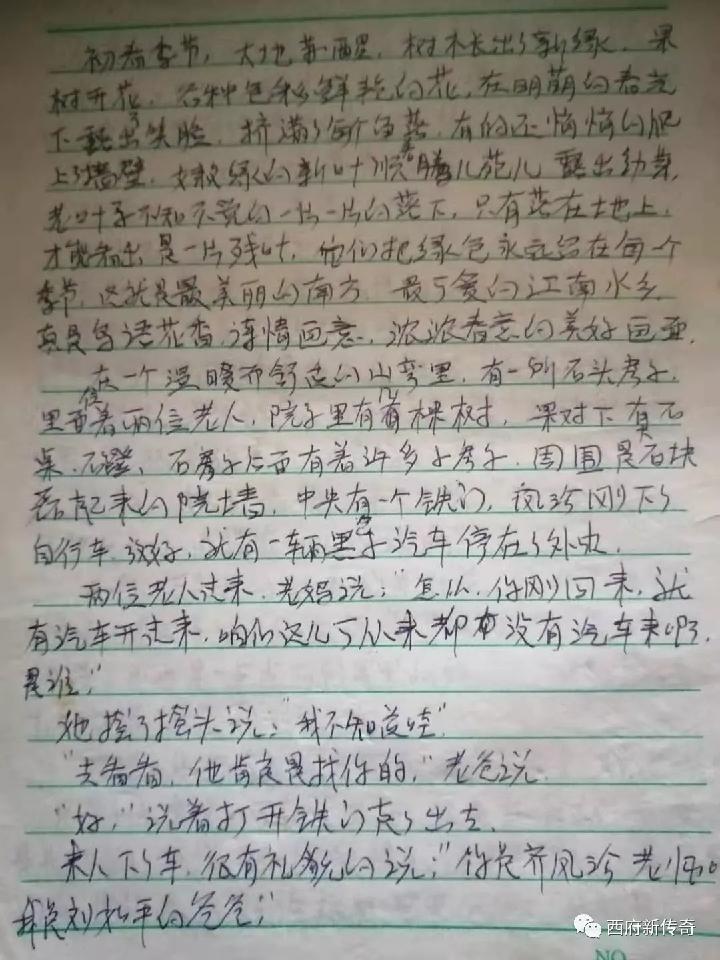 初春季节，大地苏醒，树木长出了新绿，果
树开花，各种色彩鲜艳的花，在明萌的春光
下露出了笑脸，挤满了每个角落，有的还悄悄的爬
上了墙壁，嫩绿的新叶顺着藤儿花儿露出幼芽，
老叶子不知不觉的一片一片的落下，只有落在土地上，
才能看出是一片残叶，他们把绿色永远留在每个
季节，这就是最美丽的南方，最可爱的江南水乡，
真是鸟语花香，诗情画意，浓浓春意的美好画面，
在一个温暖而舒适的山弯里，有一所石头房子，
里面住着两位老人，院子里有几棵树，果树下有石
桌，石蹬，石房子后面有着许多子房子，周围是石块
磊起来的院墙，中央有一个铁门，凤玲刚下了
自行车，放好，就有一辆黑色汽车停在了外电，
两位老人过来，老妈说：“怎么，你刚回来，就
有汽车开过来，咱们这儿可从来都没有汽车来啊，
是谁；”
她摇了摇头说：“我不知道哇”
“去看看，他肯定是找你的，”老爸说
“好，”说着打开铁门走了出去，
来人下了车，很有礼貌的说：“你是齐凤玲老师
我是刘松平的爸爸；”
西府新传奇
NO